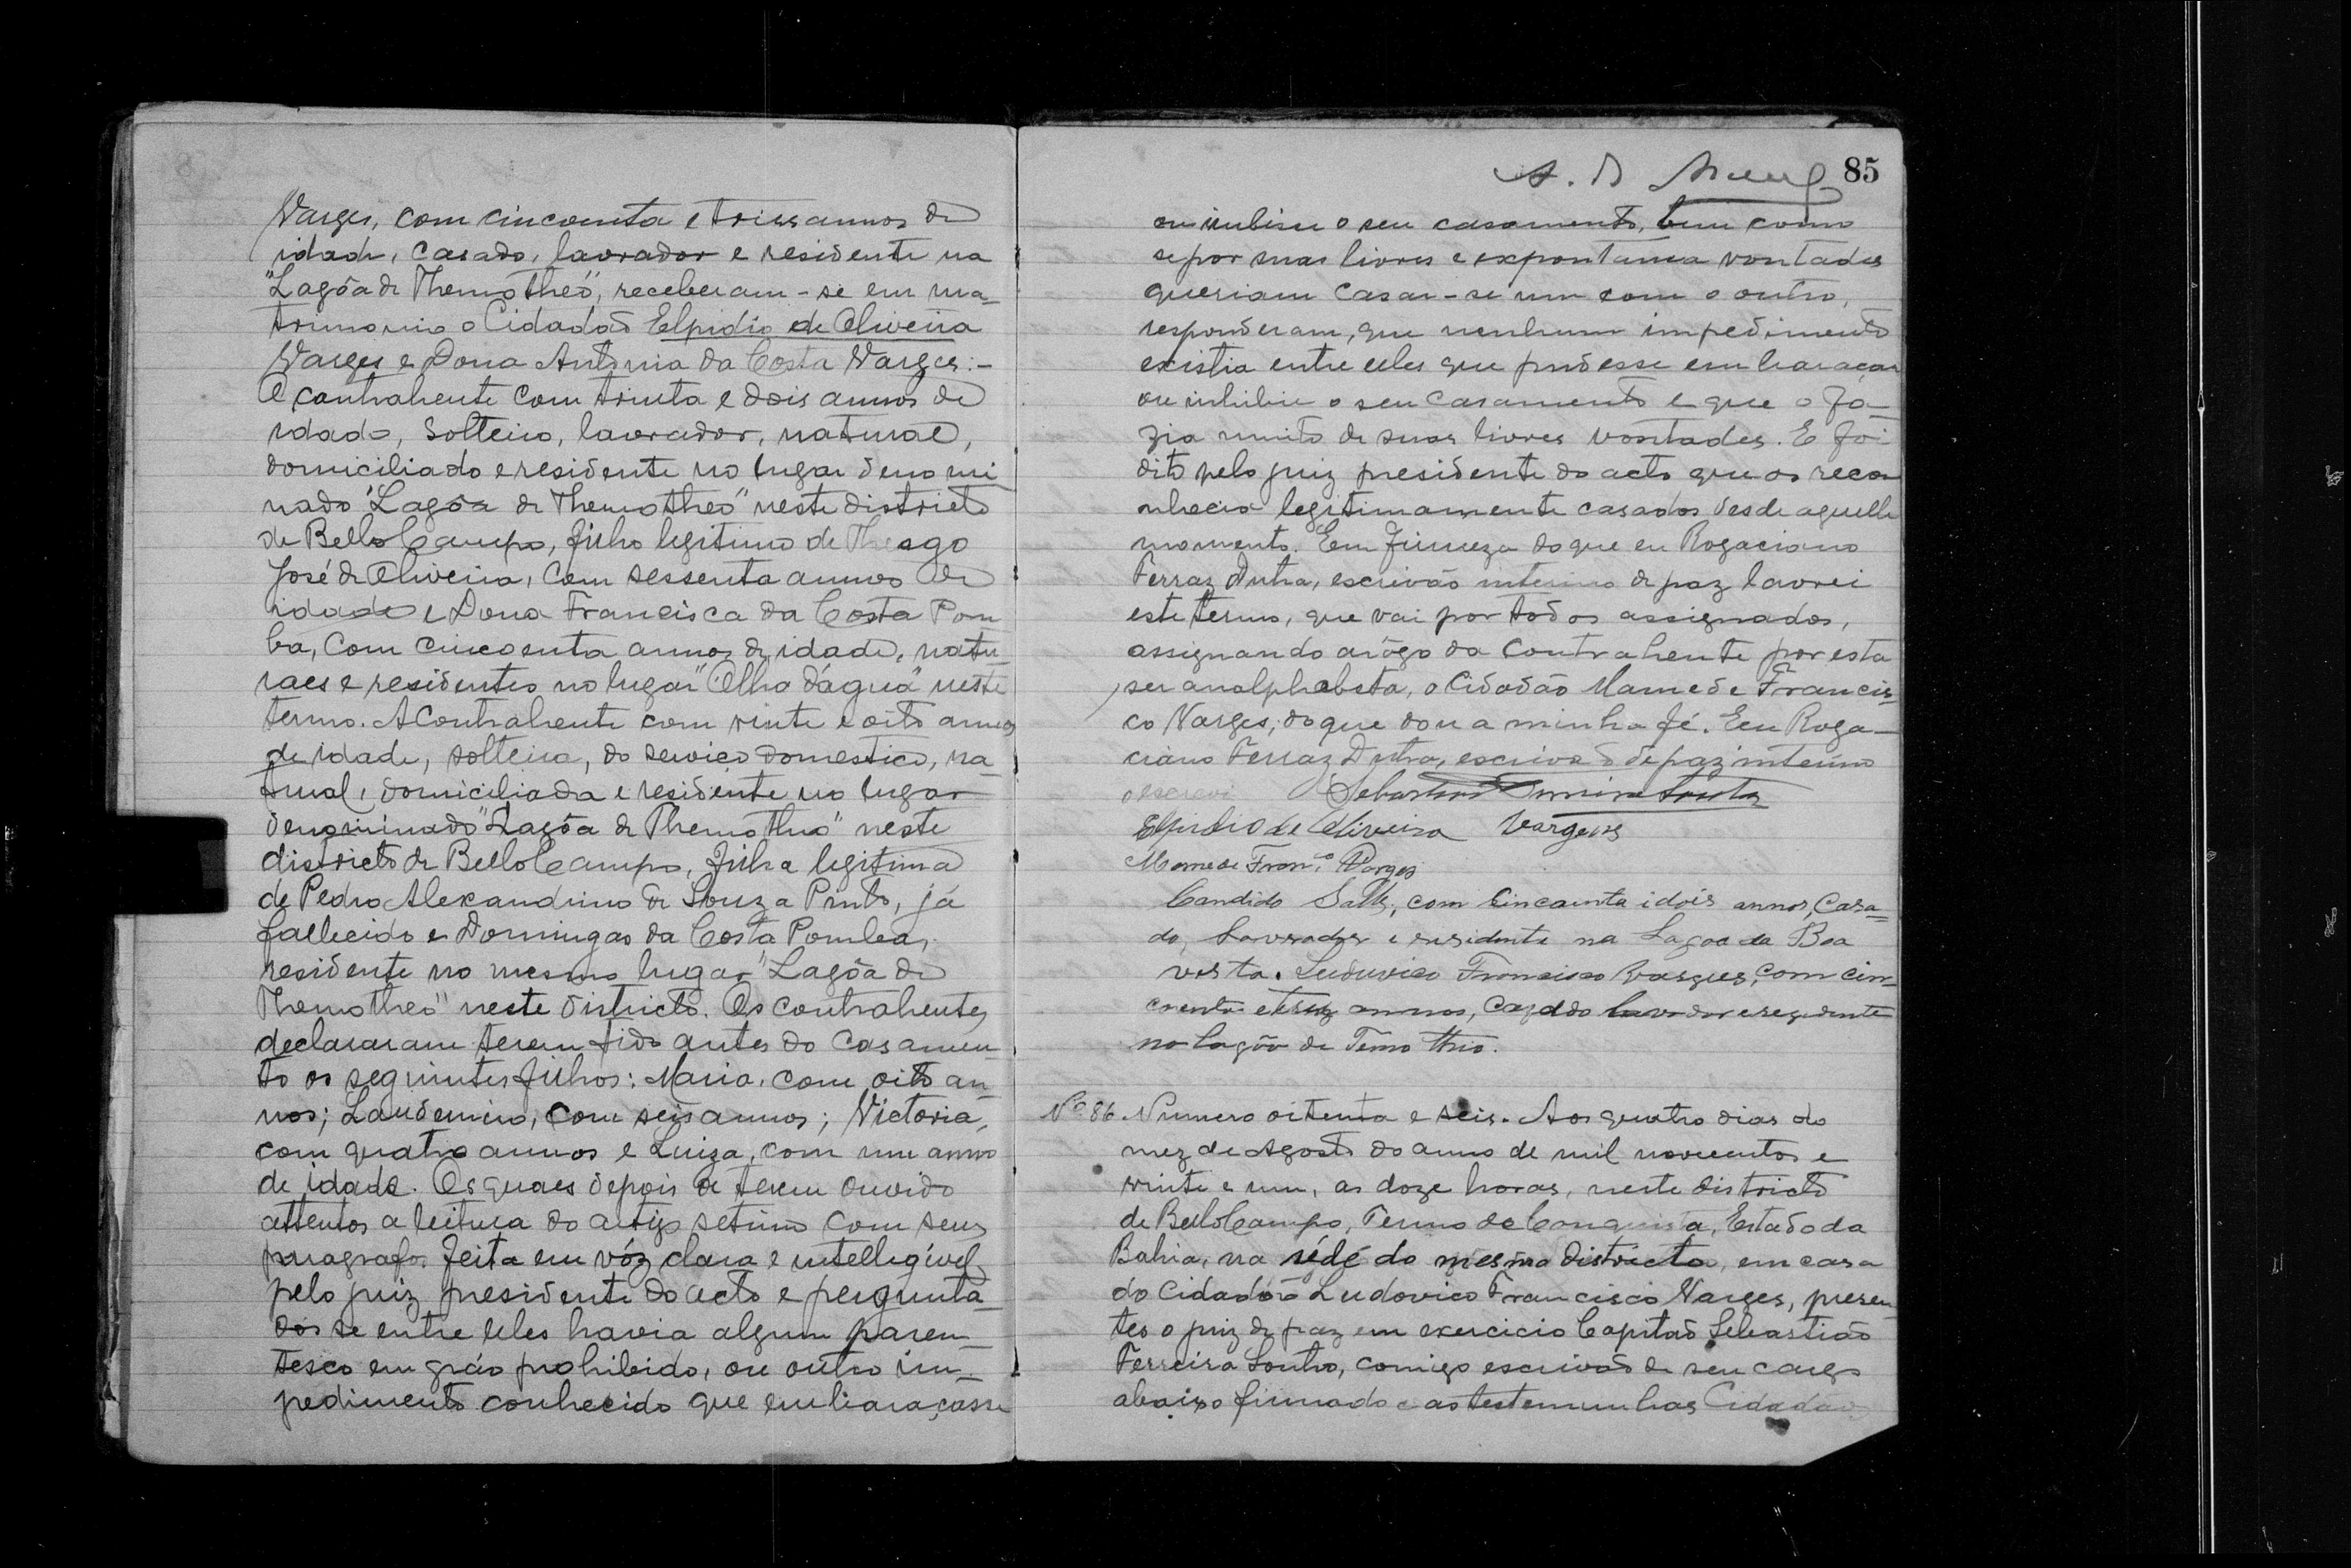 Varges, com cincoenta e tres annos de
idade, casado, lavrador e residente na
"Lagôa de Themotheo", receberam-se em ma-
trimonio o Cidadão Elpidio de Oliveira
Varges e Dona Antonia da Costa Varges:-
O contrahente com trinta e dois annos de
idade, solteiro, lavrador, natural,
domiciliado e residente no lugar denomi-
nado "Lagôa de Themotheo" neste districto
de Bello Campo, filho legitimo de Thiago
José de Oliveira, com sessenta annos de
idade e Dona Francisca da Costa Pom
ba, com cincoenta annos de idade, natu-
raes e residentes no lugar "Olho d'água" neste
termo. A Contrahente com vinte e oito annos
de idade, solteira, do serviço domestico, na-
tural, domiciliada e residente no lugar
denominado "Lagôa de Themotheo" neste
districto de Bello Campo, filha legitima
de Pedro Alexandrino de Souza Pinto, já
fallecido e Domingas da Costa Pomba,
residente no mesmo lugar "Lagôa de
Themotheo" neste districto. Os contrahentes
declararam terem tido antes do casamen-
to os seguintes filhos: Maria, com oito an-
nos; Laudemiro, com seis annos; Victoria,
com quatro annos e Luiza, com um anno
de idade. Os quaes depois de terem ouvido
attentos a leitura do artigo setimo com seus
paragrafos feita em vóz clara e intelligivel
pelo juiz presidente do acto e pergunta-
dos se entre elles havia algum paren-
tesco em gráo prohibido, ou outro im-
pedimento conhecido que embaraçasse
85
ou inhibisse o seu casamento, bem como
se por suas livres e expontanea vontades
queriam casar-se um com o outro,
responderam, que nenhum impedimento
existia entre elles que pudesse embaraçar
ou inhibir o seu casamento e que o fa-
zia muito de suas livres vontades. E foi
dito pelo juiz presidente do acto que os reco
nhecia legitimamente casados desde aquelle
momento. Em firmeza do que eu Rogaciano
Ferraz Dutra, escrivão interino de paz lavrei
este termo, que vai por todos assignados,
assignando arôgo da Contrahente por esta
ser analphabeta, o Cidadão Mamede Francis-
co Varges; do que dou a minha fé. Eeu Roga-
ciano Ferraz Dutra, escrivão de paz interino
o escrevi Sebastião Ferreira Souto
Elpidio de Oliveira Vargens
Mamede Franco Varges
Candido Salles, com cincoenta idois annos, Casa-
do, Lavrador e residente na Lagoa da Boa
vista. Luduvico Francisco Varges, com cin-
coenta etreiz annos, cazado lavrador e rezidente
no lagôa de Temotheo.
Nº 86. Numero oitenta e seis. Aos quatro dias do
mez de Agosto do anno de mil novecentos e
vinte e um, as doze horas, neste districto
de Bello Campo, Termo de Conquista, Estado da
Bahia, na séde do mesmo districto, em casa
do Cidadão Ludovico Francisco Varges, presen
tes o juiz de paz em exercicio Capitão Sebastião
Ferreira Souto, comigo escrivão de seu cargo
abaixo firmado e as testemunhas Cidadão